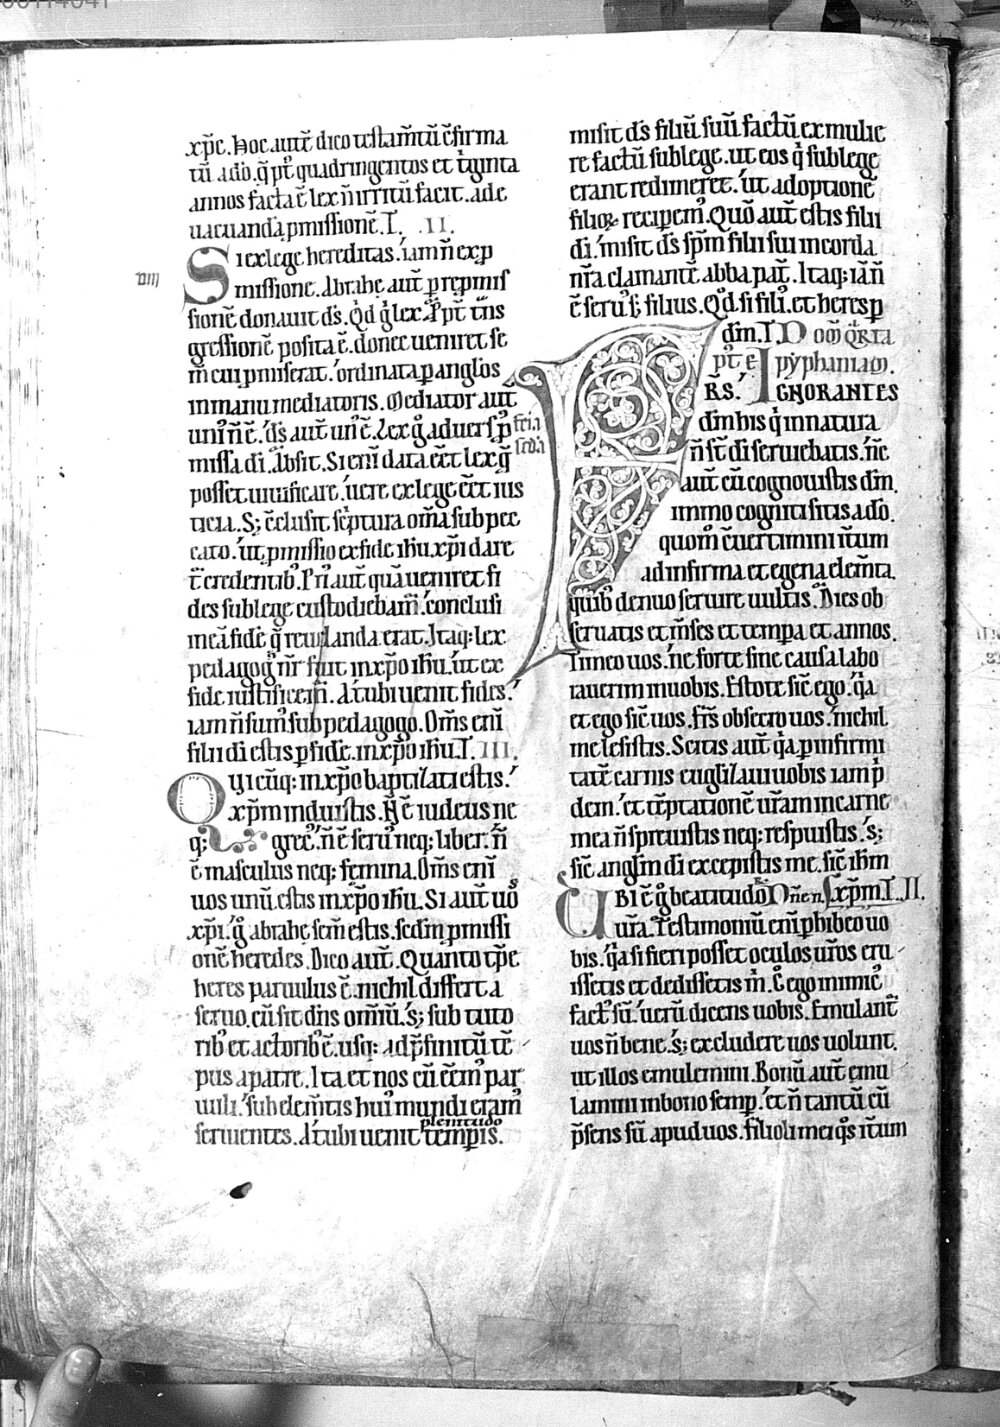 xp̄c. Hoc aut̄ dico testam̄tū c̄firma
tū a dō. q̄ pt̄ quadringentos et t̓ginta
annos facta ē lex n̄ irritū facit. ad e
uacuandā ꝓmissionē. T. .II.
Si ex lege hereditas. iam n̄ ex ꝓ
missione. Abrahę aut̄ ꝑ reꝓmis
sionē donauit ds̄. Qd̓ g̓ lex. Ꝓpt̄ t̄ns
gressionē posita ē. donec ueniret se
m̄ cui ꝓmiserat. ordinata ꝑ angl̄os
in manu mediatoris. Mediator aut̄
uni n̄ ē. ds̄ aut̄ un̓ ē. Lex g̓ aduersꝰ ꝓ
missa di. Absit. Si eni data eēt lex q̄
posset uiuificare. uere ex lege eēt ius
ticia. S; c̄clusit sc̓ptura om̄a sub pec
cato. ut ꝓmissio ex fide ih̄u xp̄i dare
t̄ credentibꝰ. Pri aut̄ quā ueniret fi
des sub lege custodiebam̓. conclusi
in eā fidē q̄ reuelanda erat. Itaq; lex
pedagogꝰ nr̄ fuit in xp̄o ih̄u. ut ex
fide iustificem̓. At ubi uenit fides.
iam n̄ sumꝰ sub pedagogo. Om̄s eni
filii di estis ꝑ fidē. in xp̄o ih̄u. T. III.
Quicūq; in xp̄o baptizati estis.
xp̄m induistis. N̄ ē iudeus ne
q; grecꝰ. n̄ ē seruꝰ neq; liber. n̄
ē masculus neq; femina. Om̄s eni
uos unū estis in xp̄o ih̄u. Si aut̄ uos
xp̄i. g̓ abrahę sem̄ estis. sedm̄ ꝓmissi
onē heredes. Dico aut̄. Quanto tp̄e
heres paruulus ē. nichil differt a
seruo. cū sit dn̄s om̄iū. s; sub tuto
ribꝰ et actoribꝰ ē. usq; ad p̄finitū tē
pus a patre. Ita et nos cū eēm̓ par
uuli. sub elem̄tis huiꝰ mundi eram̓
plenitudo
seruientes. At ubi uenit temꝑis.
misit ds̄ filiū suū factū ex mulie
re factū sub lege. ut eos q̓ sub lege
erant redimeret. ut adoptionē
filioꝝ reciperem̓. Qm̄ aut̄ estis filii
di. misit ds̄ sp̄m filii sui in corda
nr̄a clamantē. abba pat̄. Itaq; iā n̄
ē seruꝰ s; filius. Qd̓ si filiꝰ. et heres ꝑ
dm̄. T. Dom̄ q̓rta
pt̄ epyphaniam.
R̄S. IGNORANTES
dm̄ his q̓ in natura
n̄ st̄ di seruiebatis. n̄c
aut̄ cū cognouistis dm̄.
immo cogniti sitis a dō.
quom̄ c̄uertimini it̄um
ad infirma et egena elem̄ta.
quibꝰ denuo seruire uultis. Dies ob
seruatis et m̄ses et tempa et annos.
Timeo uos. ne forte sine causa labo
rauerim in uobis. Estote sic̄ ego. q̓a
et ego sic̄ uos. Fr̄s obsecro uos. nichil
me lesistis. Scitis aut̄ q̓a ꝑ infirmi
tatē carnis euglizaui uobis iam p̓
dem. et tēptationē ur̄am in carne
mea n̄ spreuistis neq; respuistis. s;
sic̄ angl̄m di excepistis me. sic̄ ih̄m
xp̄m. T. II.
Ubi ē g̓ beatitudo
ur̄a. Testimoniū eni ꝑhibeo uo
bis. q̓a si fieri posset oculos ur̄os eru
issetis et dedissetis m̓. E̓ g̓ o inimicꝰ
factꝰ sū. uerū dicens uobis. Emulant̓
uos n̄ bene. s; excludere uos uolunt.
ut illos emulemini. Bonū aut̄ emu
lamini in bono semꝑ. et n̄ tantū cū
p̄sens sū apud uos. Filioli mei q̓s it̄um